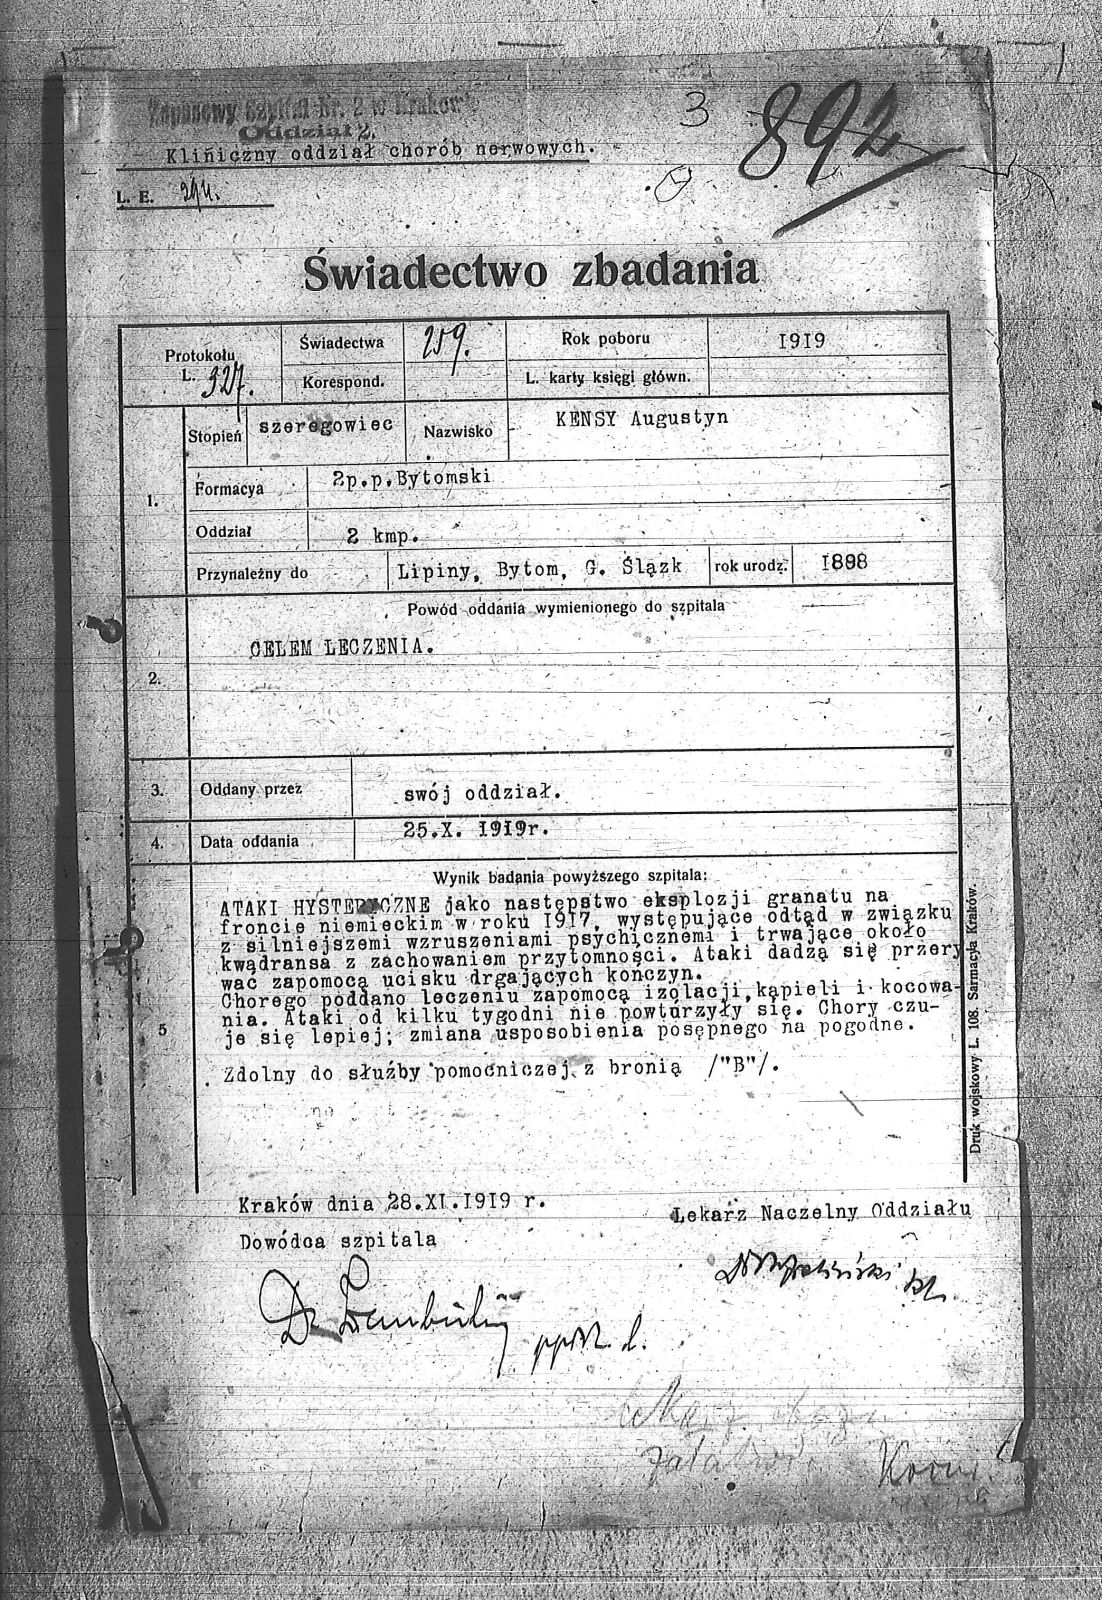 Zapasowy Szpital Nr. 2 w Krakowie
Oddział 2.
Kliniczny oddział chorób nerwowych.
3 892
L. E.
Świadectwo zbadania
Protokołu L. 327. Świadectwa 259. Rok poboru 1919
Korespond. L. karty księgi główn.
1. Stopień szeregowiec Nazwisko KENSY Augustyn
Formacya 2p.p.Bytomski
Oddział 2 kmp.
Przynależny do Lipiny, Bytom, G. Śląsk rok urodz. 1898
2. Powód oddania wymienionego do szpitala
CELEM LECZENIA.
3. Oddany przez swój oddział.
4. Data oddania 25.X. 1919r.
5 Wynik badania powyższego szpitala:
ATAKI HYSTERYCZNE jako następstwo eksplozji granatu na
froncie niemieckim w roku 1917, występujące odtąd w związku
z silniejszemi wzruszeniami psychicznemi i trwające około
kwadransa z zachowaniem przytomności. Ataki dadzą się przery
wać zapomocą ucisku drgających kończyn.
Chorego poddano leczeniu zapomocą izolacji, kąpieli i kocowa-
nia. Ataki od kilku tygodni nie powtórzyły się. Chory czu-
je się lepiej; zmiana usposobienia posępnego na pogodne.
Zdolny do służby pomocniczej z bronią /"B"/.
Druk wojskowy L. 108. Sarmacya Kraków.
Kraków dnia 28.XI.1919 r.
Lekarz Naczelny Oddziału
Dowódca szpitala
Dr